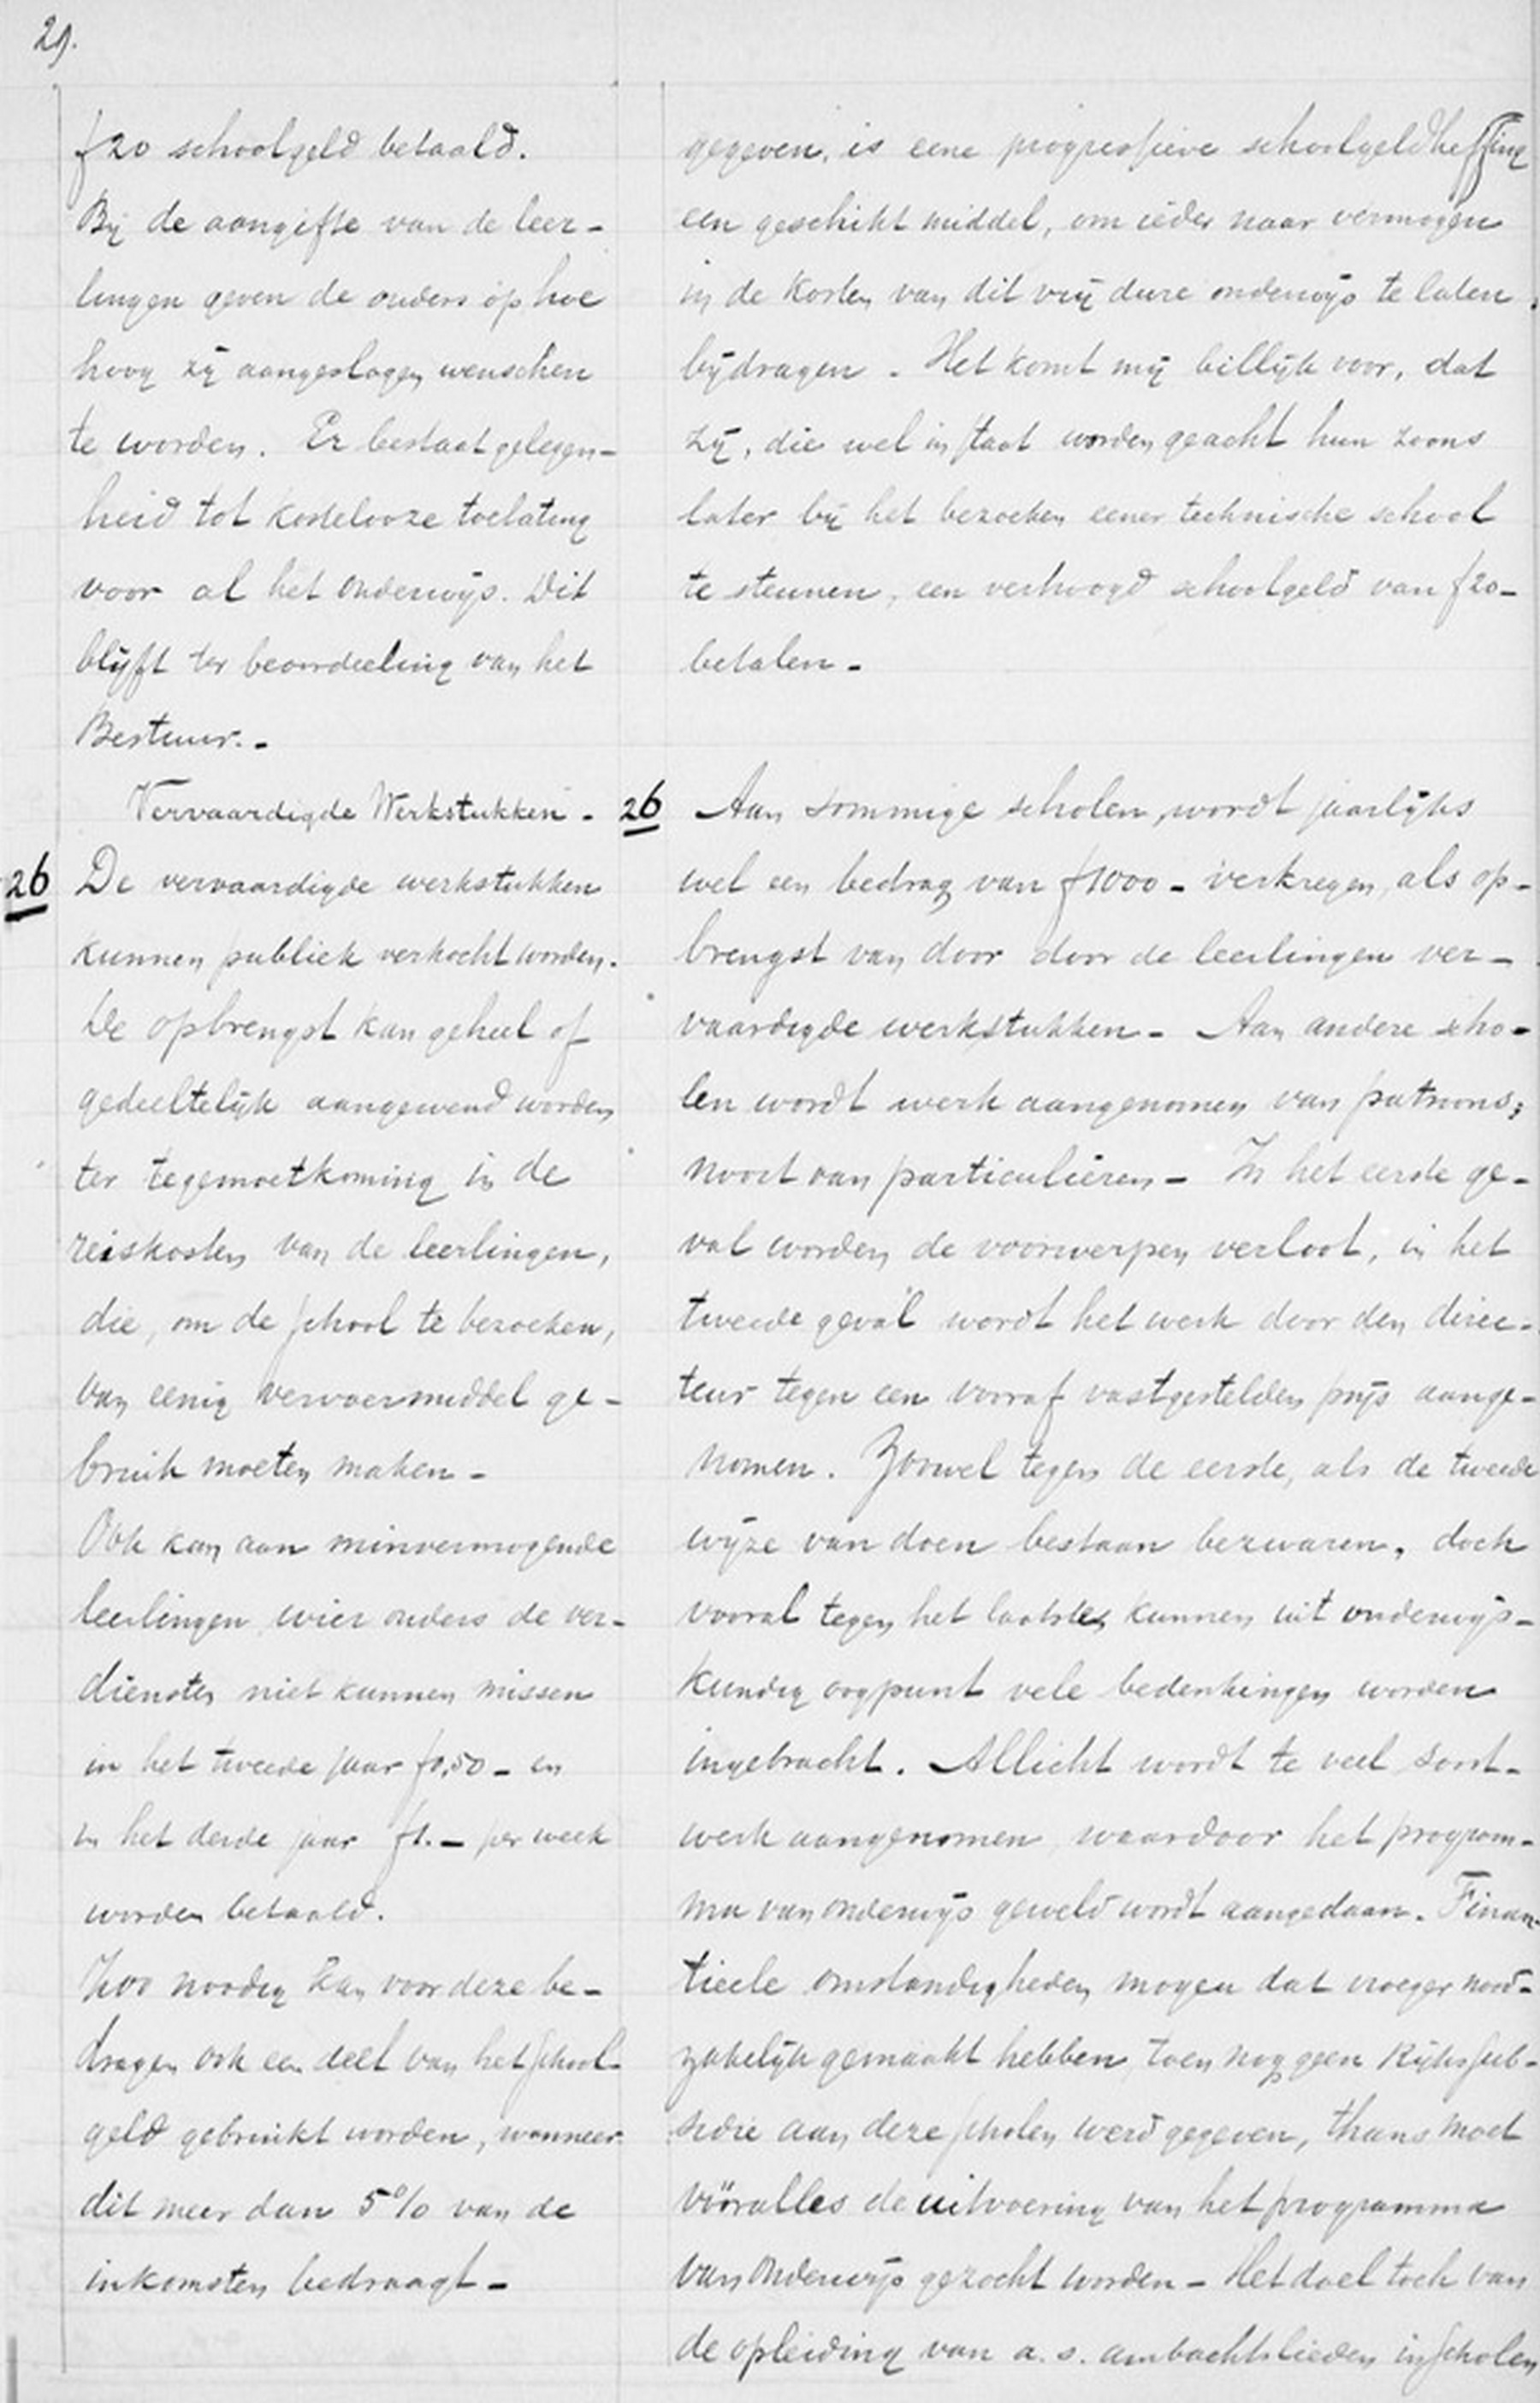 29.
f20 schoolgeld betaald.
Bij de aangifte van de leer-
lingen geven de ouders op hoe
hoog zij aangeslagen wenschen
te worden. Er bestaat gelegen-
heid tot kostelooze toelating
voor al het onderwijs. Dit
blijft ter beoordeeling van het
Bestuur.-
Vervaardigde Werkstukken.
26 De vervaardigde werkstukken
kunnen publiek verkocht worden.
De opbrengst kan geheel of
gedeeltelijk aangewend worden
ter tegemoetkoming in de
reiskosten van de leerlingen,
die, om de school te bezoeken,
van eenig vervoermiddel ge-
bruik moeten maken-
Ook kan aan minvermogende
leerlingen wier ouders de ver-
diensten niet kunnen missen
in het tweede jaar f0,50- en
in het derde jaar f1.- per week
worden betaald.
Zoo noodig kan voor deze be-
dragen ook een deel van het school-
geld gebruikt worden, wanneer
dit meer dan 5% van de
inkomsten bedraagt-
gegeven, is eene progressieve schoolgeldheffing
een geschikt middel, om ieder naar vermogen
in de kosten van dit vrij dure onderwijs te laten
bijdragen. Het komt mij billijk voor, dat
zij, die wel in staat worden geacht hun zoons
later bij het bezoeken eener technische school
te steunen, een verhoogd schoolgeld van f20-
betalen-
26 Aan sommige scholen, wordt jaarlijks
wel een bedrag van f1000- verkregen, als op-
brengst van door door de leerlingen ver-
vaardigde werkstukken- Aan andere scho-
len wordt werk aangenomen van patroons;
nooit van particulieren- In het eerste ge-
val worden de voorwerpen verloot, in het
tweede geval wordt het werk door den direc-
teur tegen een vooraf vastgestelden prijs aange-
nomen. Zoowel tegen de eerste, als de tweede
wijze van doen bestaan bezwaren, doch
vooral tegen het laatste, kunnen uit onderwijs-
kundig oogpunt vele bedenkingen worden
ingebracht. Allicht wordt te veel soort-
werk aangenomen waardoor het program-
ma van onderwijs geweld wordt aangedaan. Finan-
tieele omstandigheden mogen dat vroeger nood-
zakelijk gemaakt hebben, toen nog geen Rijkssub-
sidie aan deze scholen werd gegeven, thans moet
vóóralles de uitvoering van het programma
van onderwijs gezocht worden- Het doel toch van
de opleiding van a.s. ambachtslieden in scholen